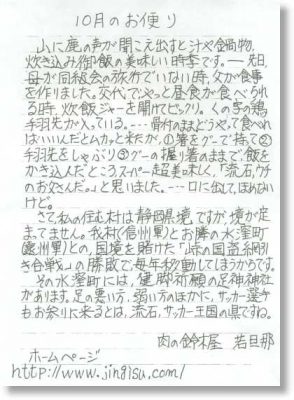 10月のお便り
山に鹿の声が聞こえ出すと汁や鍋物、
炊き込み御飯の美味しい時季です。――先日、
母が同級会の旅行でいない時、父が食事
を作りました。交代でやっと昼食が食べられ
る時、炊飯ジャーを開けてビックリ。くの字の鶏
手羽先が入っている。---骨付のままどうやって食べれ
ばいいんだとムカッと来たが、①箸をグーで持って②
手羽先をしゃぶり③グーの握り箸のままで飯を
かき込んだところスーパー超美味しく、「流石、ウチ
のお父さんだ。」と思いました。---口に出して、ほめない
けど。
さて私の住む村は静岡県境ですが境が定
まってません。我村(信州軍)とお隣の水窪町
(遠州軍)との、国境を賭けた「峠の国盗綱引
き合戦」の勝敗で、毎年移動してしまうからです。
その水窪町には、健脚祈願の足神神社
があります。足の悪い方、弱い方のほかに、サッカー選手
もお参りに来るとは、流石、サッカー王国の県ですね。
肉の鈴木屋 若旦那
ホームページ
http://www.jingisu.com/